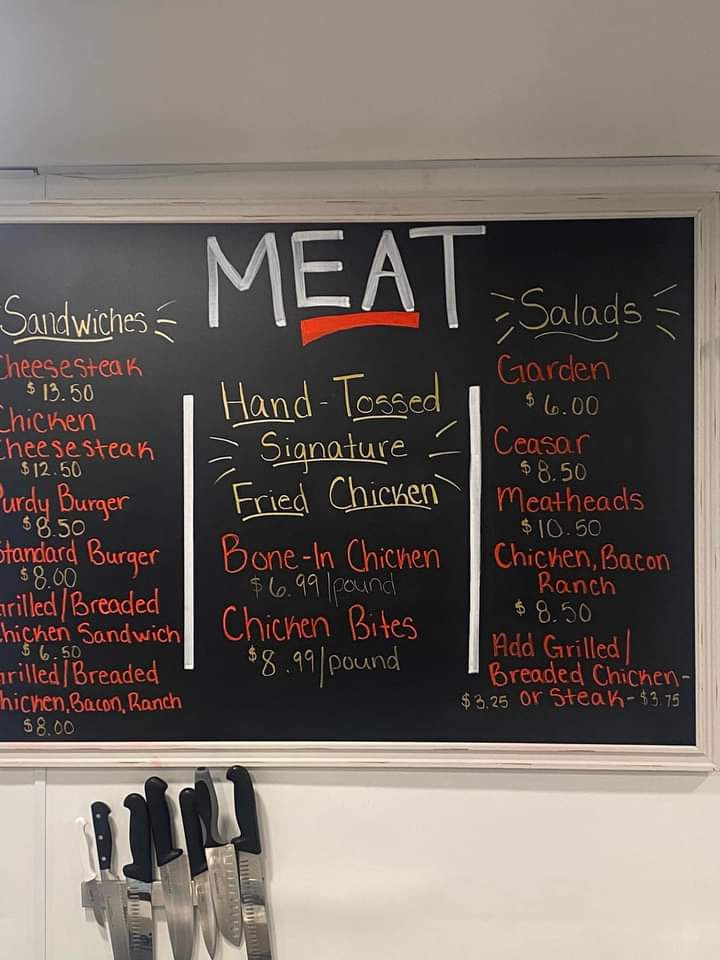 MEAT
Sandwiches
Cheesesteak
$13.50
Chicken
Cheesesteak
$12.50
Purdy Burger
$8.50
Standard Burger
$8.00
rilled/Breaded
hicken Sandwich
$6.50
rilled/Breaded
hicken, Bacon, Ranch
$8.00
Hand-Tossed
Signature
Fried Chicken
Bone-In Chicken
$6.99/pound
Chicken Bites
$8.99/pound
Salads
Garden
$6.00
Ceasar
$8.50
Meatheads
$10.50
Chicken, Bacon
Ranch
$8.50
Add Grilled/
Breaded Chicken-
$3.25 or Steak-$3.75